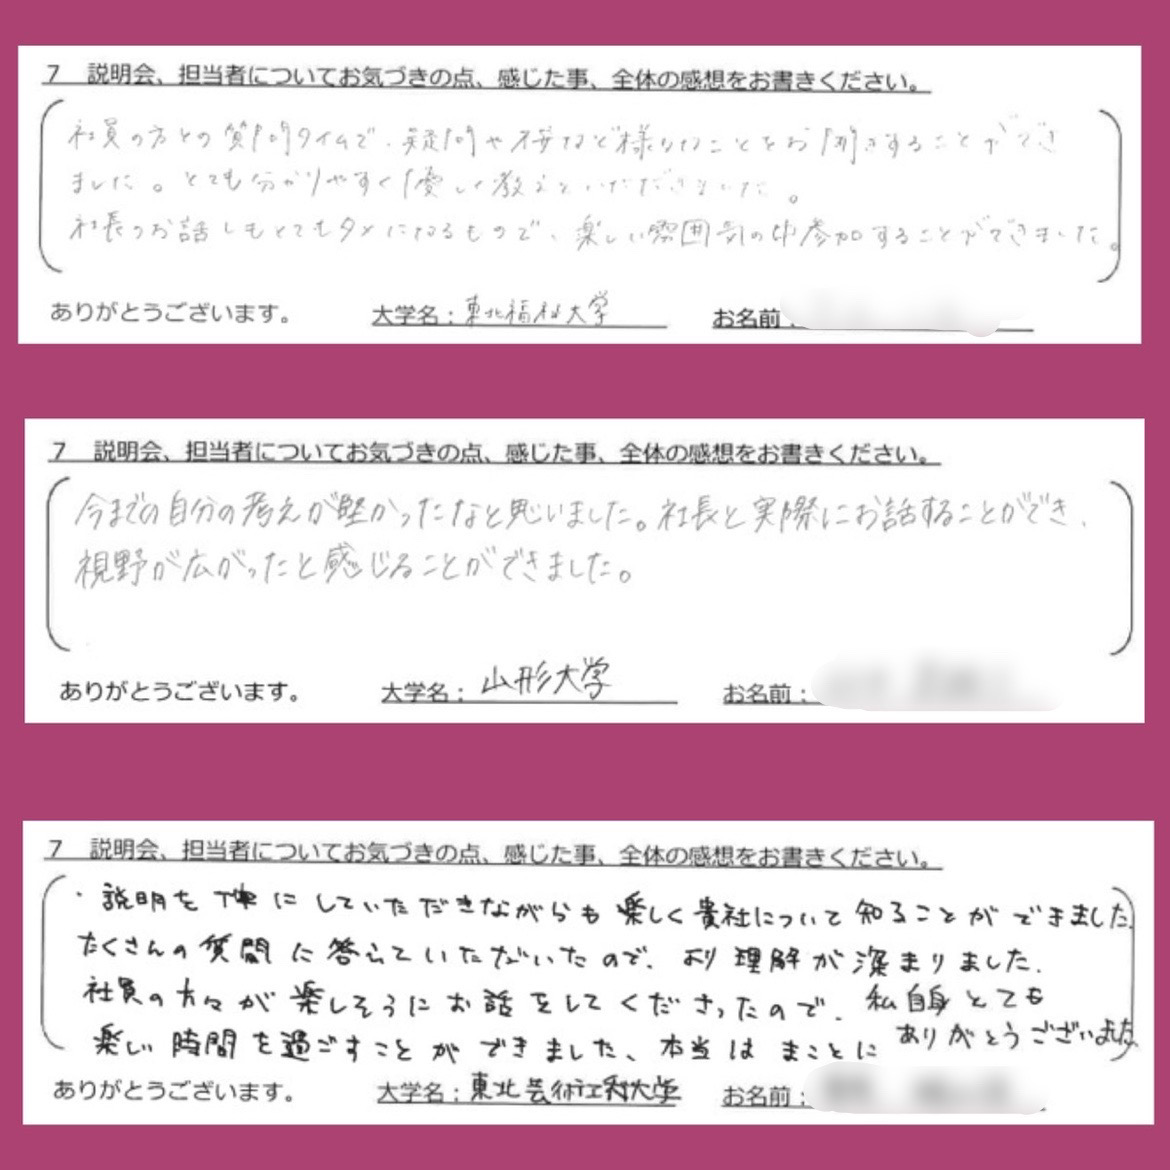 7 説明会、担当者についてお気づきの点、感じた事、全体の感想をお書きください。
社員の方との質問タイムで、疑問や不安など様々なことをお聞きすることができ
ました。とても分かりやすく優しく教えていただきました。
社長のお話しもとてもタメになるもので、楽しい雰囲気の中参加することができました。
ありがとうございます。 大学名:東北福祉大学 お名前:
7 説明会、担当者についてお気づきの点、感じた事、全体の感想をお書きください。
今までの自分の考えが堅かったなと思いました。社長と実際にお話することができ、
視野が広がったと感じることができました。
ありがとうございます。 大学名:山形大学 お名前:
7 説明会、担当者についてお気づきの点、感じた事、全体の感想をお書きください。
・説明を にしていただきながらも楽しく貴社について知ることができました。
たくさんの質問に答えていただいたので、より理解が深まりました。
社員の方々が楽しそうにお話をしてくださったので、私自身とても
楽しい時間を過ごすことができました、本当はまことにありがとうございました
ありがとうございます。 大学名:東北芸術工科大学 お名前: